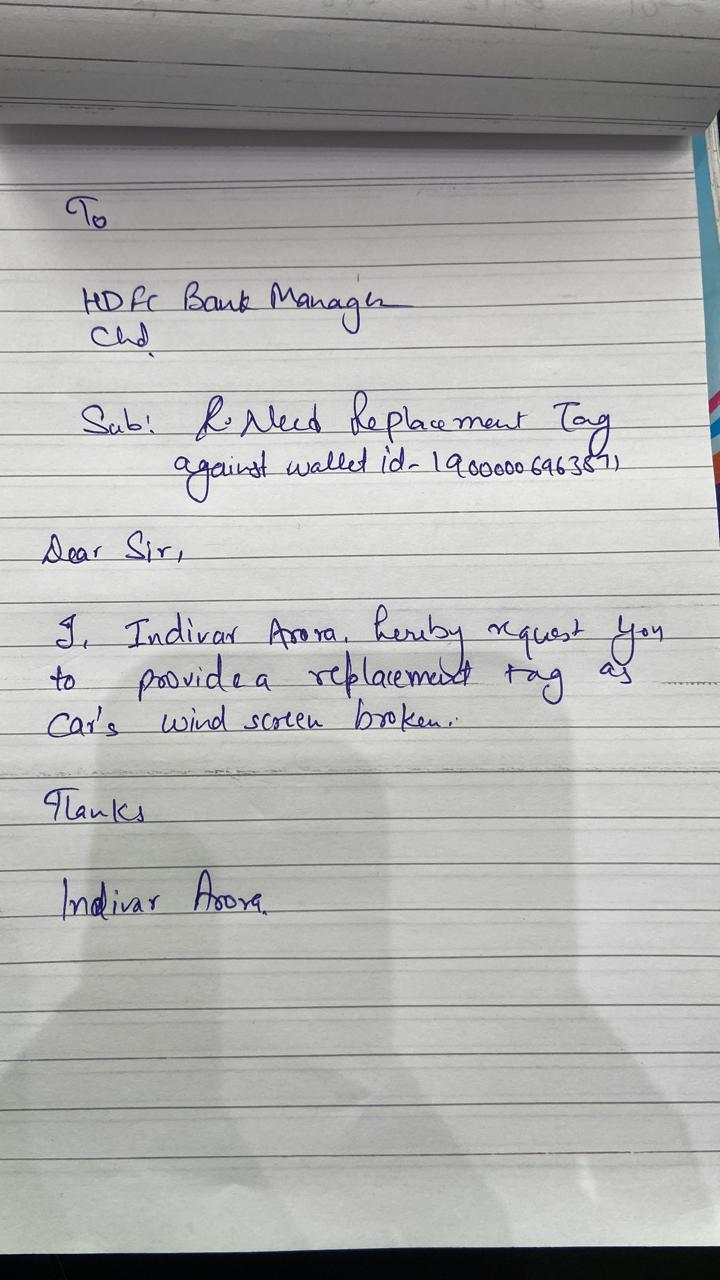 To
HDFC Bank Manager
Chd.
Sub: R. Need Replacement Tag
against wallet id- 19000006963871
Dear Sir,
I, Indivar Arora, hereby request you
to provide a replacement tag as
Car's wind screen broken..
Thanks
Indivar Arora.